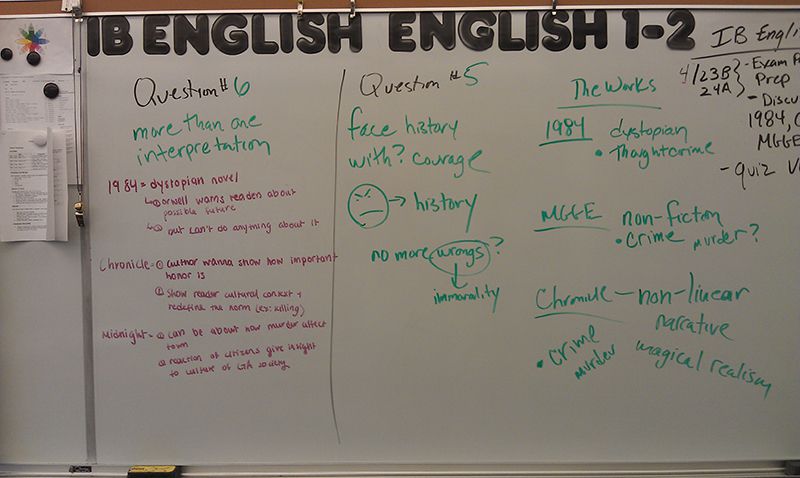 IB ENGLISH ENGLISH 1-2
Question #6
more than one
interpretation
1984 = dystopian novel
① orwell warns readers about
possible future
② but can't do anything about it
Chronicle = ① author wanna show how important
honor is
② show reader cultural context +
redefine the norm (ex: killing)
Midnight = ① can be about how murder affect
town
② reaction of citizens give insight
to culture of GA society
Question #5
face history
with? courage
→ history
no more wrongs?
immorality
The Works
1984 dystopian
• Thoughtcrime
MGGE non-fiction
• Crime murder?
Chronicle — non-linear
narrative
• crime magical realism
murder
IB Engli
4/23B - Exam P
24A Prep
- Discu
1984, C
MGGE
- Quiz V